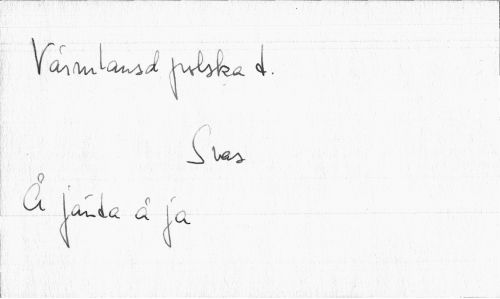 Värmlansd polska d.
Svas
Å jänta å ja